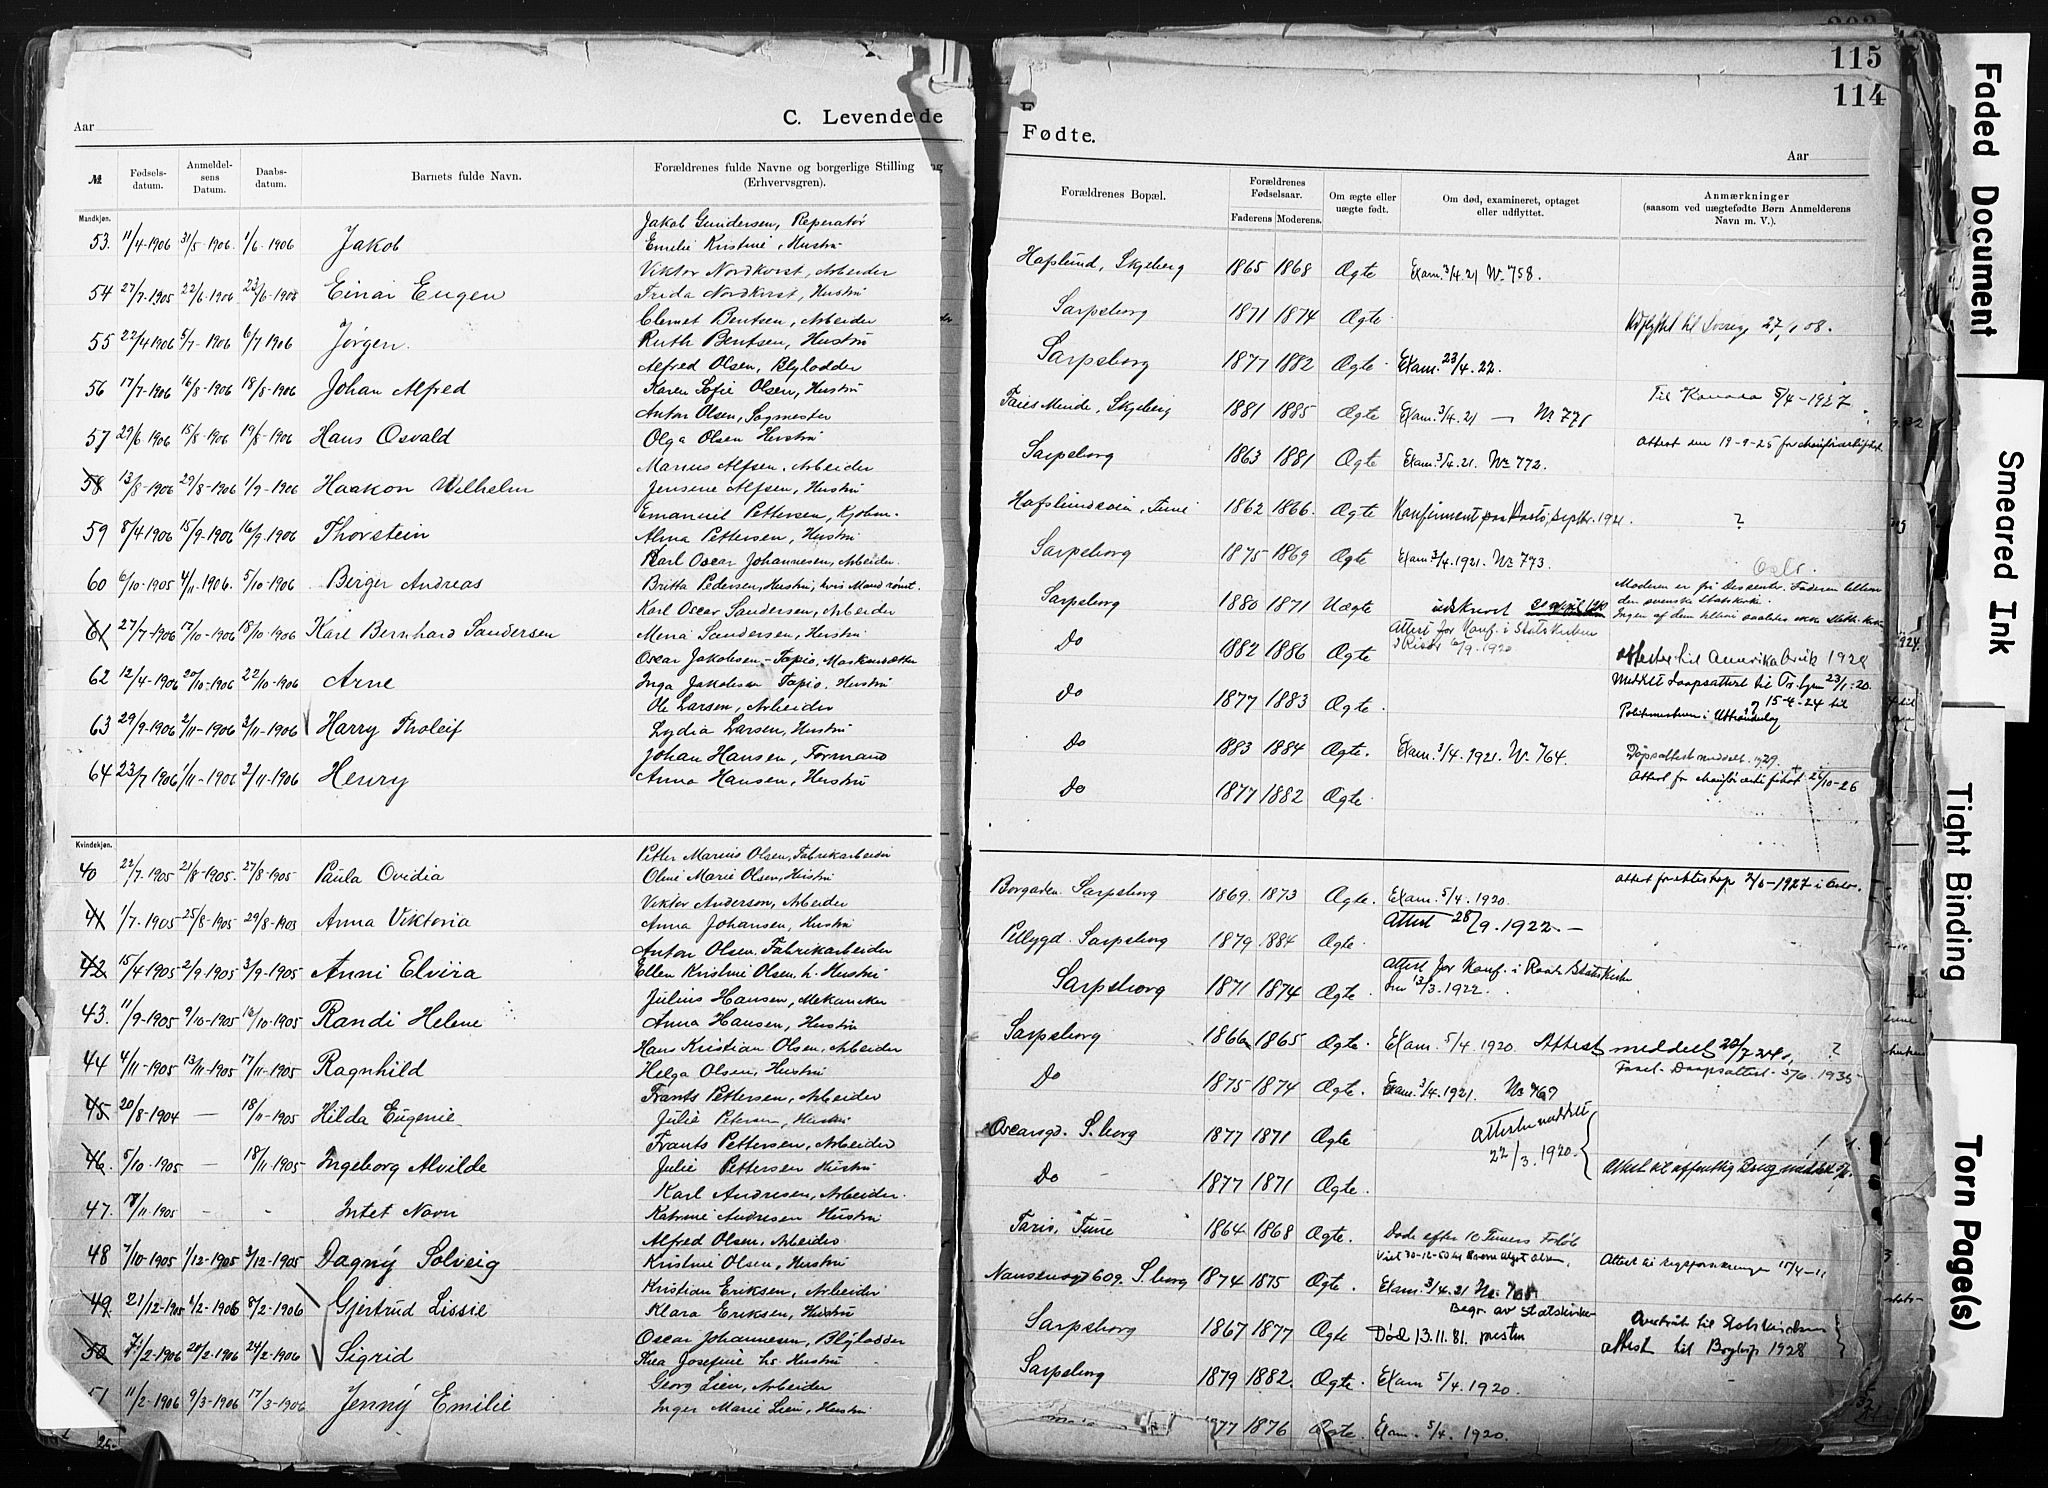 Aar
C. Levendede
№
Fødsels-datum.
Anmeldel-sens Datum.
Daabs-datum.
Barnets fulde Navn.
Forældrenes fulde Navne og borgerlige Stilling
(Erhvervsgren).
Mandkjøn.
Jakob Gundersen, Reperatør
53. 11/4-1906 31/5-1906. 1/6-1906 Jakob Emelie Kristine, Hustru
Viktor Nordkvist, Arbeider
54 27/7-1905 22/6-1906 23/6-1905 Einar Eugen Frida Nordkvist, Hustru
Clemet Bentsen, Arbeider
55 22/4 1906 5/7-1906 6/7 1906 Jørgen. Ruth Bentsen, Hustru
Alfred Olsen, Blylodder
56 17/7-1906 16/8-1906 18/8-1906 Johan Alfred Karen Sofie Olsen, Hustru
Anton Olsen, Sagmester
57 29/6 1906 15/8-1906 19/8-1906 Hans Osvald Olga Olsen Hustru
Marius Alfsen, Arbeider
58 13/8-1906 29/8-1906 1/9-1906 Haakon Wilhelm Jensine Alfsen, Hustru
Emanuel Pettersen, Kjøbm.
59 8/4 1906 15/9-1906 16/9-1906 Thorstein Alma Pettersen, Hustru
Karl Oscar Johannesen, Arbeider.
60 6/10-1905 4/11-1906. 5/10-1906 Berger Andreas Britta Pedersen, Hustru, hvis Mand rømt.
Karl Oscar Sandersen, Arbeider
61 27/7-1906 17/10-1906 18/10-1906 Karl Bernhard Sandersen Mena Sandersen, Hustru
Oscar Jakobsen-Tapio, Maskinsætter
62 12/4-1906 20/10-1906 22/10-1906 Arne Inga Jakobsen Tapio, Hustru
Ole Larsen, Arbeider
63 29/9-1906 2/11-1906 3/11-1906 Harry Tholeif Lydia Larsen, Hustru
Johan Hansen, Formand
64 23/7 1906 1/11-1906 2/11-1906 Henry Anna Hansen, Hustru
Kvindekjøn.
Petter Marius Olsen, Fabrikarbeider
40 22/7-1905 21/8-1905. 27/8-1905 Paula Ovidia Oline Marie Olsen, Hustru
Viktor Anderson, Arbeider
41 1/7-1905 25/8-1905 29/8-1905 Anna Viktoria Anna Johansen, Hustru
Anton Olsen, Fabrikarbeider
42 15/4-1905 2/9-1905 3/9-1905 Anni Elvira Ellen Kristine Olsen h. Hustru
Julius Hansen, Mekaniker
43. 11/9-1905 9/10-1905 16/10-1905 Randi Helene Anna Hansen, Hustru
Hans Kristian Olsen, Arbeider
44 4/11-1905 13/11-1905 17/11-1905 Ragnhild Helga Olsen, Hustru
Frants Pettersen, Arbeider
45 20/8-1904 — 18/11-1905 Hilda Eugenie Julie Petersen, Hustru
Frants Pettersen, Arbeider
46. 5/10-1905 — 18/11-1905 Ingeborg Alvilde Julie Pettersen Hustru
Karl Andresen, Arbeider.
47. 11-1905 - - Intet Navn Katrine Andresen Hustru
Alfred Olsen, Arbeider
48 7/10-1905 1/12-1905 3/12-1905 Dagny Solveig Kristine Olsen, Hustru
Kristian Eriksen, Arbeider
49 21/12-1905 1/2-1906 8/2-1906 Gjertrud Lissie Klara Eriksen, Hustru
Oscar Johannesen, Blylodder
50 7/2-1906 20/2-1906 24/2-1906 Sigrid Thea Josefine hs. Hustru
Georg Lien, Arbeider
51 11/2-1906 9/3-1906 17/3-1906 Jenny Emilie Inger Marie Lien, Hustru
115
114
Fødte.
Aar
Forældrenes Bopæl.
Forældrenes Fødselsaar.
Faderens Moderens.
Om ægte eller uægte født.
Om død, examineret, optaget eller udflyttet.
Anmærkninger
(saasom ved uægtefødte Børn Anmelderens Navn m. V.).
Hafslund, Skjeberg 1865 1868 Ægte Exam. 3/4.21 No 758.
Sarpsborg 1871 1874 Ægte Udflyttet til 27/1 08.
Sarpsborg 1877 1882 Ægte Exam. 23/4.22.
Til Kanada 5/4-1927
Skjeberg 1881 1885 Ægte Exam. 3/4.21 — No 771
Attest den 19-9-25 for
Sarpsborg 1863 1881 Ægte Exam. 3/4.21. No 772.
Hafslundsveien, Tune 1862 1866. Ægte Konfirment Septbr. 1921. ?
Sarpsborg 1875 1869 Ægte Exam. 3/4.1921. No 773.
Oslo.
Moderen er fri Dissenter. Faderen tilhører
Sarpsborg 1880 1871 Uægte udskrevet den svenske Statskirke.
Attest for Konf. i Statskirken
Do 1882 1886 Ægte 6/9.1920 Attester til Amerika 1928
Meddelt Daapsattest til 23/1-20.
Do 1877 1883 Ægte 15-4-24 til
Politimesteren i
Do 1883 1884 Ægte. Exam. 3/4.1921. No 764 Døpsattest meddelt 1929.
Attest for 26/10-26
Do 1877 1882 Ægte
Attest 1927 i Oslo.
Borgaden. Sarpsborg 1869. 1873 Ægte. Exam. 5/4.1920.
Attest 28/9.1922 —
Sarpsborg 1879 1884 Ægte
Attest for Konf. i Statskirke
Sarpsborg 1871 1874 Ægte den 13/3.1922.
Sarpsborg 1866 1865 Ægte. Exam. 5/4 1920. Attest meddelt 20/7 24 ?
Daapsattest 5/6 1935
Do 1875 1874 Ægte. Exam. 3/4.1921. No 767
Oscarsgd. S.borg 1877 1871 Ægte Attester meddelt
22/3.1920.
Do 1877 1871 Ægte. Attest til offentlig Brug meddelt
Tune 1864 1868 Ægte. Døde efter 10 Timers Forløb
Attest 15/4-11
Nansensgd 609. S.borg 1874 1875 Ægte. Exam. 3/4.21 No 768
Begr. av statskirke-
Sarpsborg 1867 1877 Ægte Død 13.11.81. presten
Overtråt til Statskirken
attest til 1928
Sarpsborg 1879 1882. Ægte. Exam 5/4.1920.
1877 1876 Ægte. Exam. 5/4.1920.
Faded Document
Smeared Ink
Tight Binding
Torn Page(s)